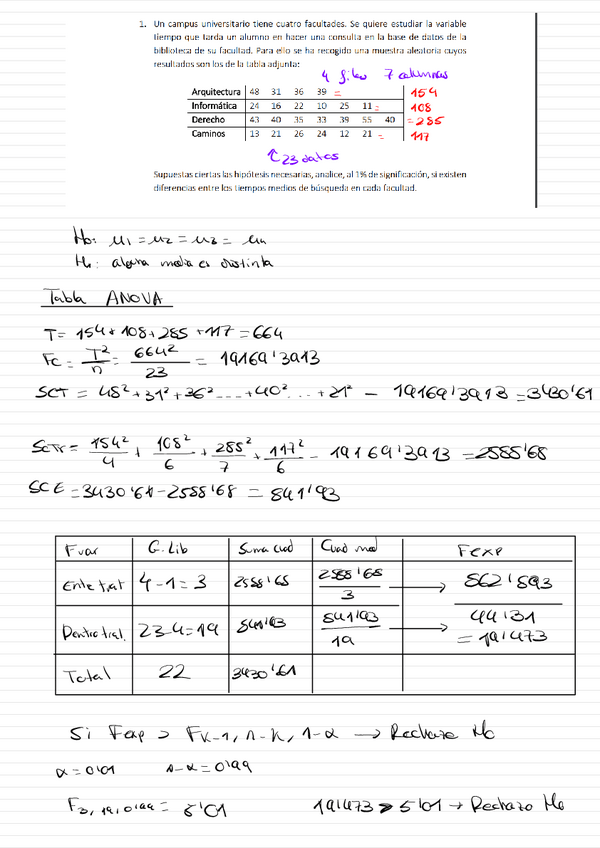 1. Un campus universitario tiene cuatro facultades. Se quiere estudiar la variable
tiempo que tarda un alumno en hacer una consulta en la base de datos de la
biblioteca de su facultad. Para ello se ha recogido una muestra aleatoria cuyos
resultados son los de la tabla adjunta:
4 filas 7 columnas
Arquitectura 48 31 36 39 = 154
Informática 24 16 22 10 25 11 = 108
Derecho 43 40 35 33 39 55 40 = 285
Caminos 13 21 26 24 12 21 = 117
↑ 23 datos
Supuestas ciertas las hipótesis necesarias, analice, al 1% de significación, si existen
diferencias entre los tiempos medios de búsqueda en cada facultad.
Ho: μ1 = μ2 = μ3 = μn
H1: alguna media es distinta
Tabla ANOVA
T = 154 + 108 + 285 + 117 = 664
Fc = T²/n = 664²/23 = 19169'3913
SCT = 48² + 31² + 36² ... + 40² ... + 21² - 19169'3913 = 3430'61
SCTr = 154²/4 + 108²/6 + 285²/7 + 117²/6 - 19169'3913 = 2588'68
SCE = 3430'61 - 2588'68 = 841'93
F var G. Lib Suma cuad Cuad med Fexp
Entre trat 4-1=3 2588'68 2588'68/3 → 862'893
Dentro trat. 23-4=19 841'93 841'93/19 → 44'31
= 19'473
Total 22 3430'61
Si Fexp > Fk-1, n-k, 1-α → Rechazo Ho
α = 0'01 1-α = 0'99
F3, 19, 0'99 = 5'01 19'473 > 5'01 → Rechazo Ho